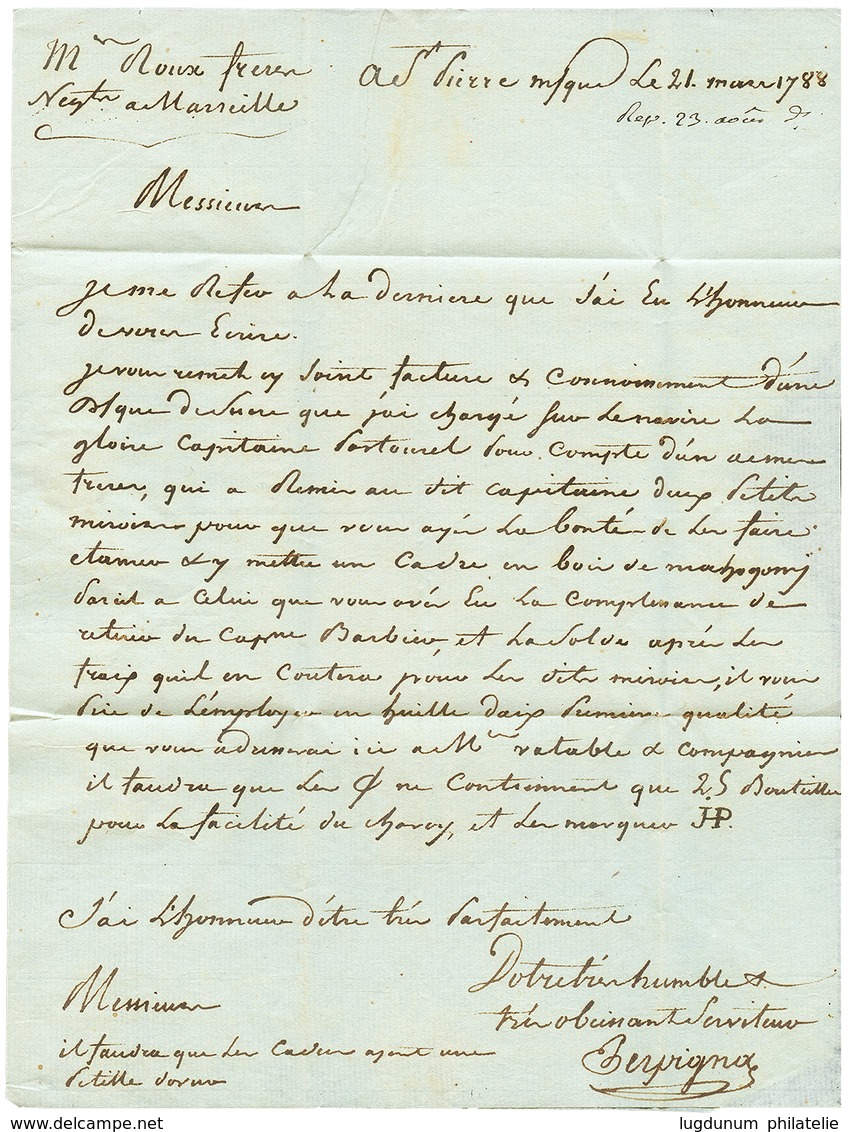 Mrs Roux freres
Negts a Marseille
A St Pierre Mque Le 21. mars 1788
Rep. 23. août
Messieurs
je me Refere a la derniere que J'ai Eu L'honneur
de vous Ecrire.
je vous remets cy Joint facture & Connoissement d'une
Bque de sucre que j'ai chargé sur Le navire La
gloire Capitaine Pastourel pour Compte d'un de mes
freres, qui a Remis au dit capitaine deux Petits
miroirs pour que vous ayés La bonté de les faire
etamer & y mettre un Cadre en bois de mahogony
Pareil a Celui que vous avés Eu La Complaisance de
retirer du Capne Barbier, et La Solde après Les
fraix qu'il en Coutera pour Les dits miroirs, il vous
Prie de L'employer en huille d'aix Premiere qualité
que vous adresserai ici a Mrs ratable & Compagnie
il faudra que Les ne Contiennent que 25 Bouteilles
pour La facilité du charoy, et Les marquer JHP.
J'ai L'honneur d'être très Parfaitement
Votre très humble &
très obeissant Serviteur
Messieurs
Perpigna
il faudra que Les Cadres ayent une
Petitte dorure
lugdunum philatelie